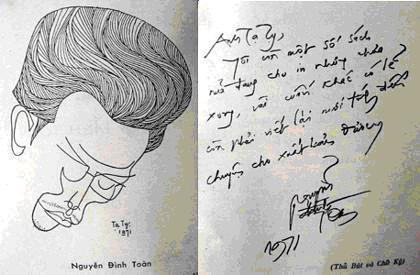 Tạ Tỵ:
1971
Nguyễn Đình Toàn
Anh Tạ Tỵ,
Tôi còn một số sách
nữa đang cho in nhưng chưa
xong, vài cuốn khác có lẽ
còn phải viết lại mới
chuyện cho xuất bản được
Nguyễn
Toàn
1971
(Thủ Bút và Chữ Ký)